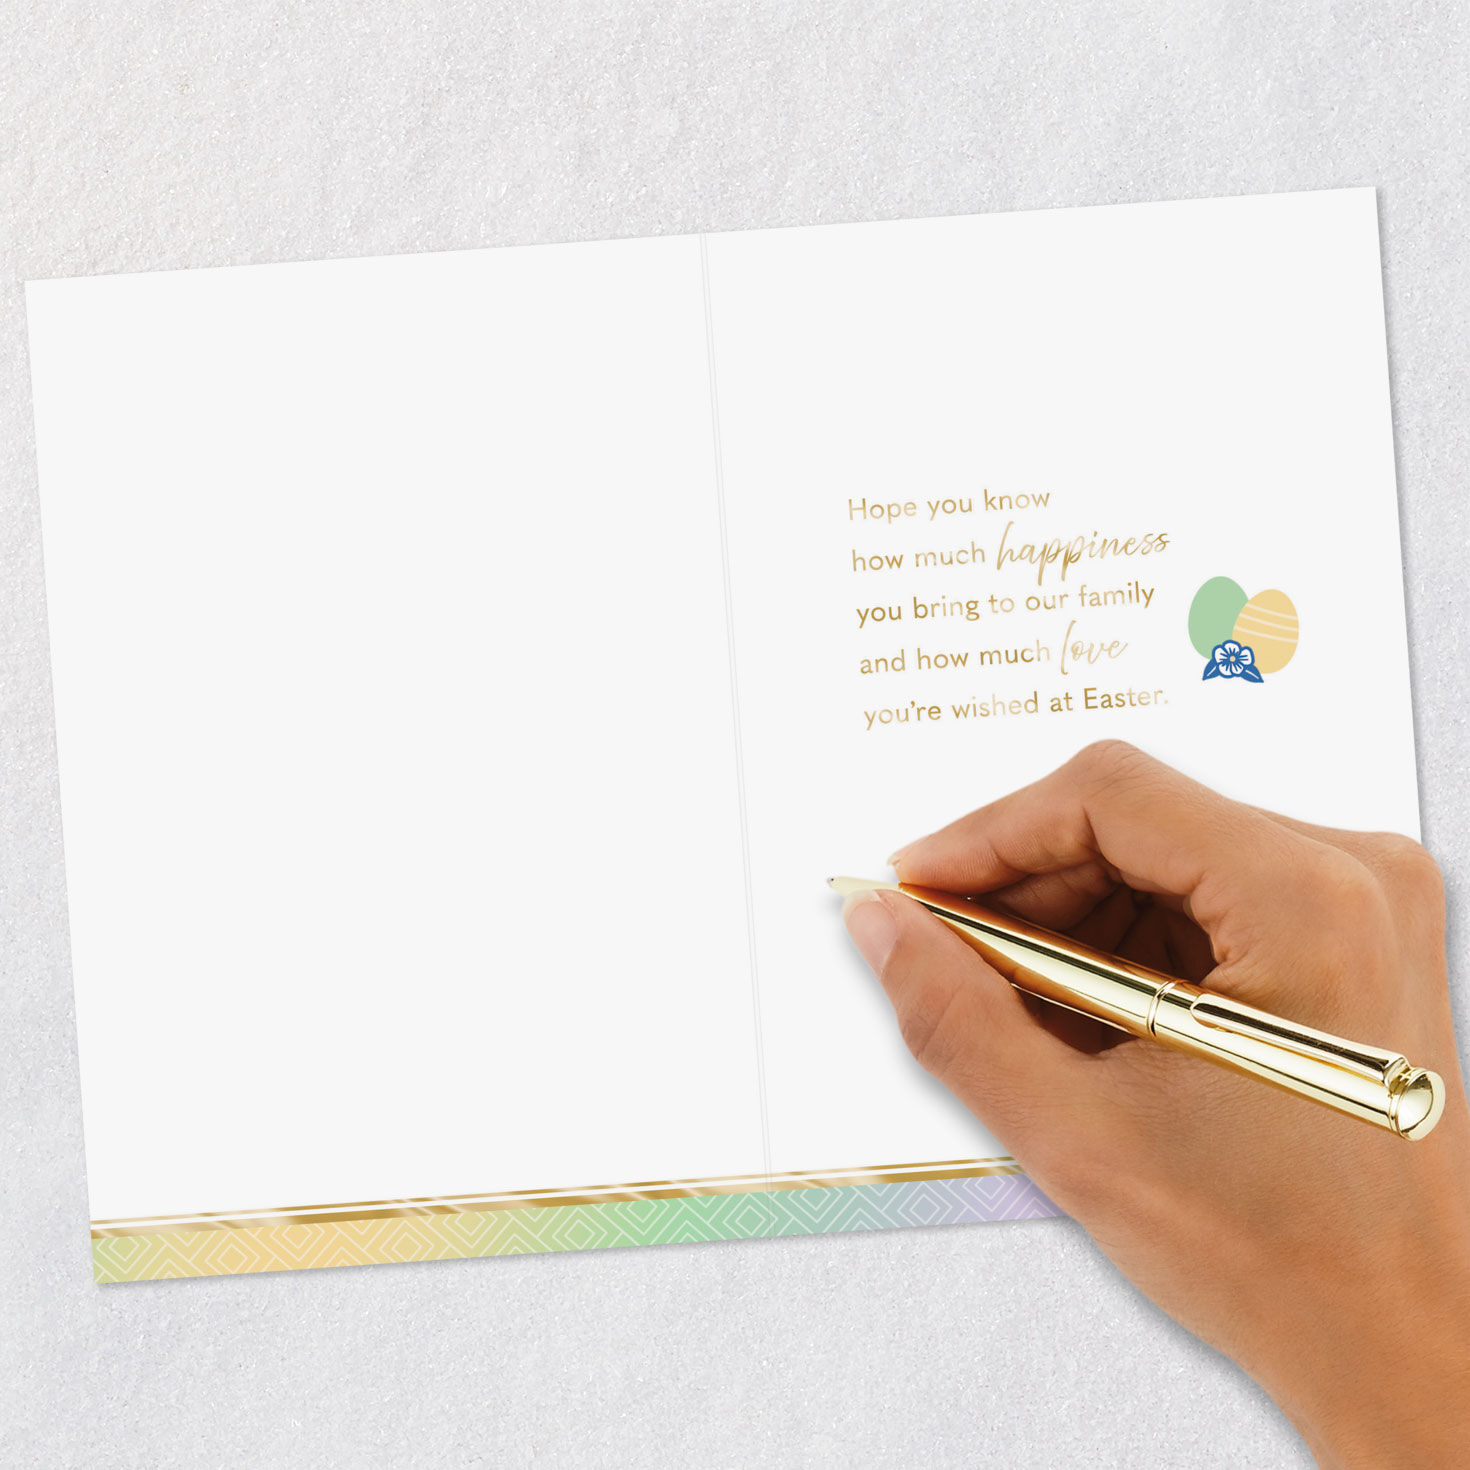 Hope you know
how much happiness
you bring to our family
and how much love
you're wished at Easter.